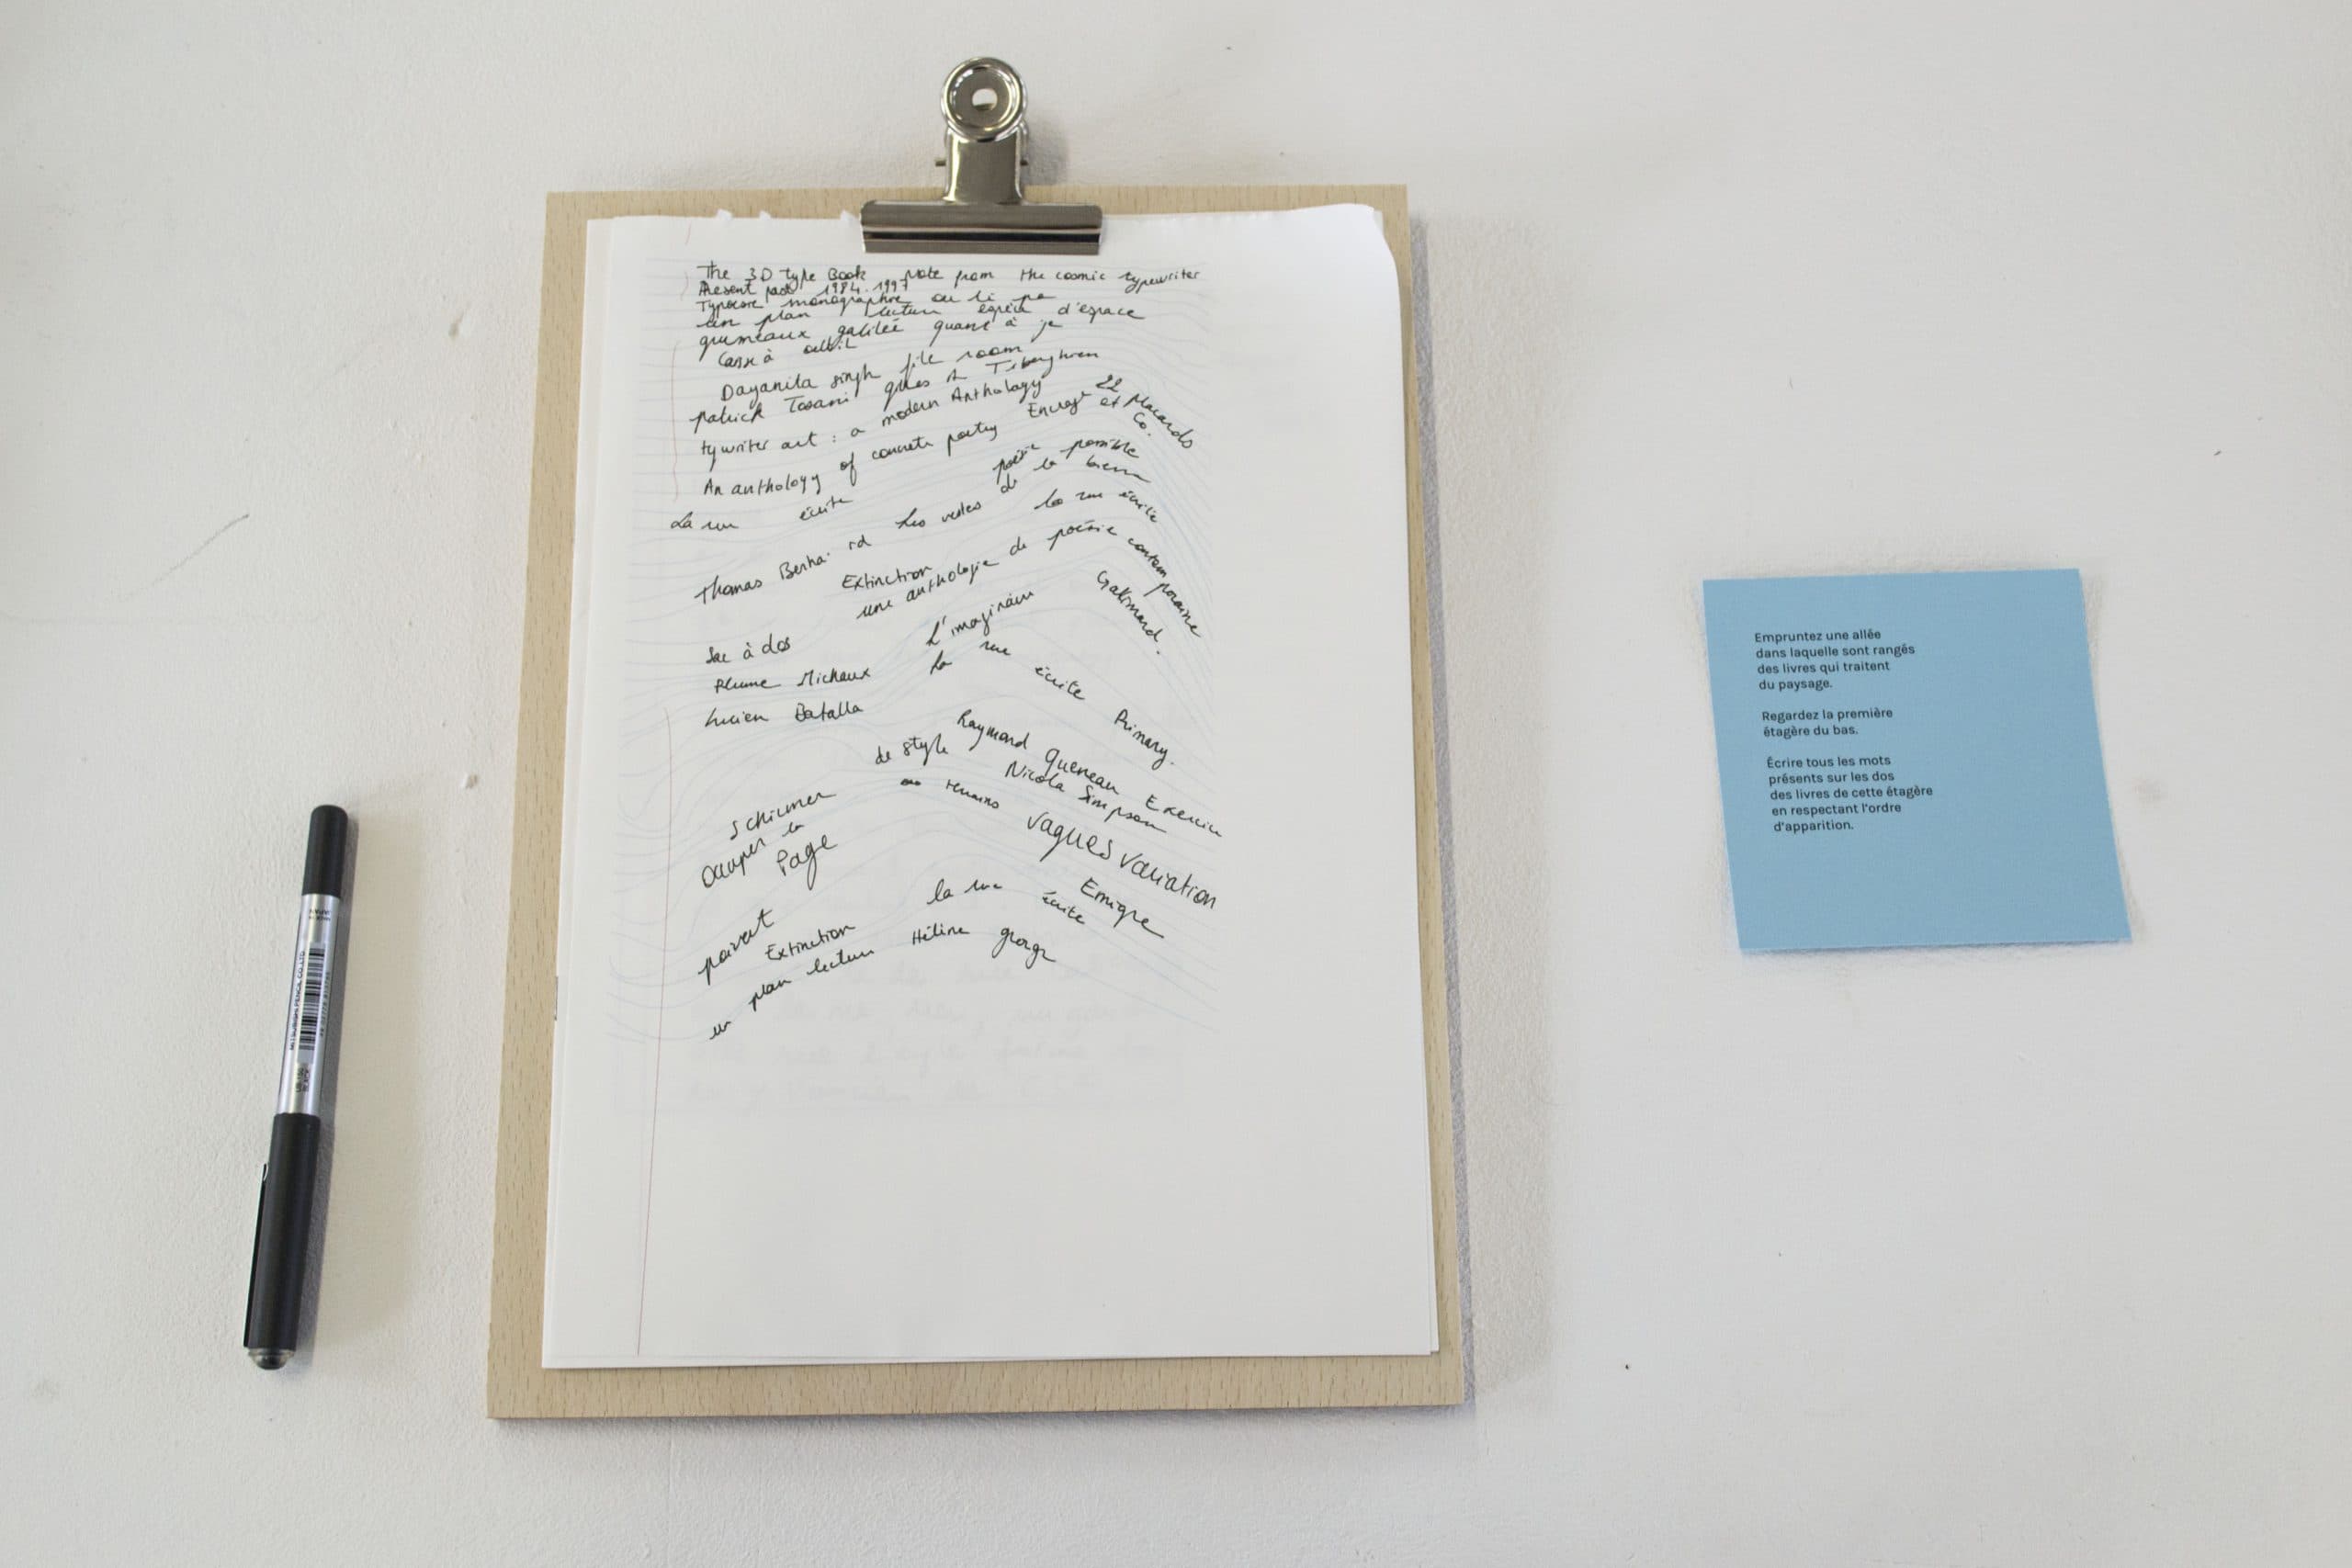 The 3D type Book Note from the cosmic typewriter
Present past 1984.1997
monographie ou li pa
un plan lecture espèce d'espace
grumeaux galilée quant à je
Casse à
Dayanita singh file room
patrick Tosani gilles A Tiberghien
tywriter art : a modern Anthology
An anthology of concrete poetry Encrage 22 placards
et Co.
La rue écrite
poésie possible
Thomas Bernha rd Les restes de la
la rue écrite
Extinction
une anthologie de poésie contemporaine
Gallimard.
Sac à dos
L'imaginaire
Plume Michaux
la rue écrite Primary.
Lucien Batalla
Raymond Queneau Exercice
de style
Nicola Simpson
Schirmer
remains
Vagues Variation
Occuper la
Page
Emigre
la rue écrite
Extinction
un plan lecture Hélène
Empruntez une allée
dans laquelle sont rangés
des livres qui traitent
du paysage.
Regardez la première
étagère du bas.
Écrire tous les mots
présents sur les dos
des livres de cette étagère
en respectant l'ordre
d'apparition.
MITSUBISHI PENCIL CO.LTD